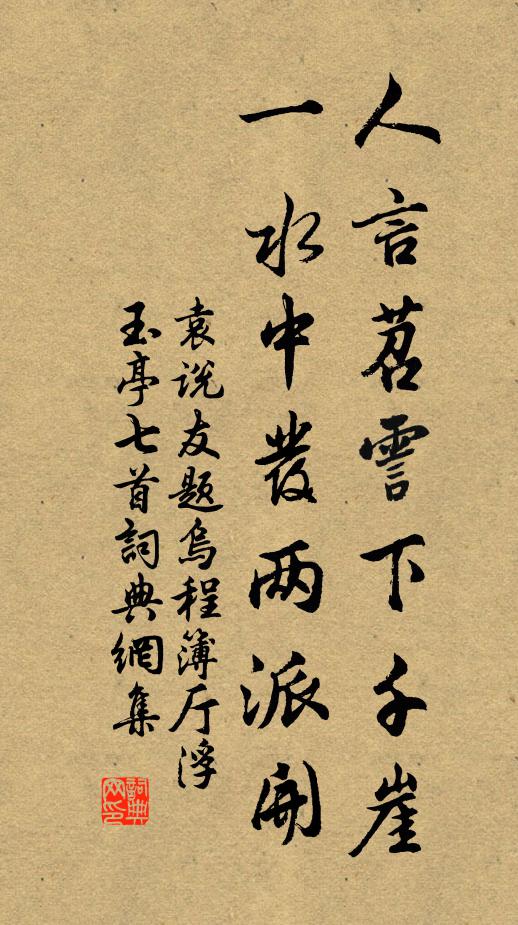 人言苕霅下千崖
一水中發两派開
袁说友题烏程簿厅浮
玉亭七首詞典網集
詞典
网印